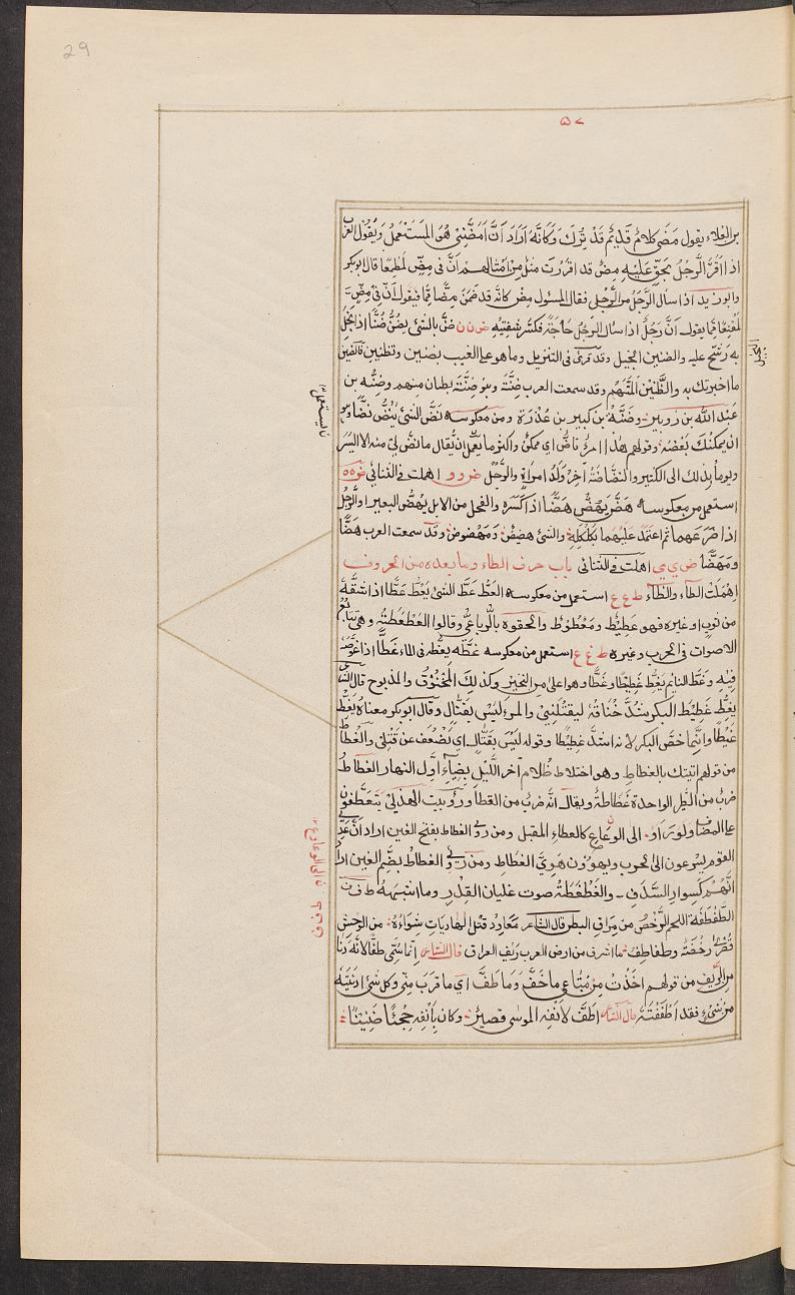 29
٥٧
بن العلاء يقول مَضّني كلامٌ قديمٌ قد تُرِكَ وكَأنَّهُ أرَادَ أنّ أمَضَّنِي هُوَ المُسْتَعْمَلُ ويَقُول العرب
اذا اَقَرَّ الرّجلُ بحَقٍّ عَليْهِ مِضِّ قد اقرَرْتَ مَثَلٌ مِن اَمثالهم اَنَّ فى مِضٍّ لَمَطْمَعًا قال ابوبكر
وابوزيد اذا سأل الرّجُلُ من الرّجُلِ فقال المسئول مِضِّ كانّه قد ضَمِنَ مِضّا فيقول انّ فِى مِضِّ
لَمَقْنعًا يقول اَنَّ رَجُلٌ اذا سأل الرجلَ حَاجَةً فكسّر شفتيْهِ ض ن ن ضنَّ بالشئ يضنُّ ضَنًّا اذا بَخِلَ
به وشَحّ عليه والضنين البخيل وقد قرئ فى التنزيل وما هو على الغيب بضنين وبظنين
ما اخبرتك به والظَّنين المتّهم وقد سمعت العرب ضِنَّة وبنو ضِنَّةَ بطنان منهم وضِنَّه بن
عَبْد الله بن وضِنَّهُ بن كبير بن عُذرَة ومن معكوسه نَضَّ الشئ يَنُضُّ نَضًّا وهو
ان يمكنك بَعْضُه وقولهم هذا امرٌ ناضٌّ اى ممكنٌ واكثر ما يستعمل ان يُقال ما نضّ لى منه الا اليَسِير
ويومأ بذلك الى الكثير والنُضَاضَةُ آخِرُ وَلَد امراةٍ والرّجل ض و و اهملت فى الثنائى ض ه ه
استعمل من معكوسه هَضَّ يَهُضُّ هَضًّا اذا كَسَرَه والفحل من الابل يهُضّ البعير والرّجُل
اذا صَرَعهما ثم اعتمَدَ عليهما بكَلْكَلِهِ والشئ هضيضٌ ومَهْضوضٌ وقد سمعت العرب هَضَّا
ومَهَضًّا ض ى ى اهملت فى الثنائى باب حرف الطاء وما بعده من الحروف
اهْمَلتْ الطّاء والظاءُ ط ع ع استعمل من معكوسه العَطُّ عَطَّ الشئ يَعُطُّ عَطًّا اذا شقّهُ
من ثوبٍ او غيره فهو عَطِيْطٌ ومَعْطُوطٌ والحقوه بالرّباعىِّ وقالوا العَطْعَطَةُ وهى تتابُع
الاصوات فى الحرب وغيره ط غ غ استعمل من معكوسه غطّه يغُطّه فى الماء غَطًّا اذا غوَّصَه
فيهِ وغَطَّ النايم يَغِطُّ غَطِيطًا وغَطًّا وهو اعلى من النخير وكذلك المَخْنوُقُ والمذبوح قال الشاعر
يغِطُّ غَطِيْطَ البَكرِ شُدَّ خُناقهُ ليقتُلني والمرء ليْسَ بقَتّالِ وقال ابوبكر معناهُ يَغطُّ
غَطيطًا وانّما خصّ البكر لانه اشدَّ غطِيْطًا وقوله ليْسَ بقتّالٍ اى يَضْعُف عَن قتلى والغُطاطُ
من قولهم اتيتك بالغطاطِ وهو اختلاط ظلام آخر اللّيل بضياء اوّل النهار الغطاطُ
ضربٌ من الطير الواحدة غَطَاطةُ ويقالُ انّهُ ضربٌ من القطا ورُوِى بيت الهذلى يَتَعَطّفُون
على المضاف ولو راَوا الى الوَغاغ كالعطاء المقبل ومن روى الغطاط بفتح الغين اراد اَنّ
القوم يسرعون الى الحرب ويهوُوُن هَوِىَّ الغَطاطِ ومَن رَوَى الغُطاطُ بضّم الغين اراد
اَنَّهُمْ كَسِوادِ السَّدَفِ والغَطْغَطَةُ صوت غليان القِدْر وما اشبههُ ط ف ف
الطَّفْطفة اللحم الرَّخْصُ من مَراقِ البطن قال الشاعر مُعَاوِدُ قتل الهاديَاتِ شِوَاؤُهُ مِن الوحش
قُصْرَى رخْصَةٌ وطفاطِفُ ما اشرف من ارض العرب ريف العراق قال الشاعر اِنّما سُمّى طفًّا لانّهُ دَنا
من الرّيف من قولهم اخذتُ مِن مَتَاعِى ما خَفَّ وَما طَفَّ اى ما قرَبَ مِنّى وكلّ شئ ادنَيْتَهُ
من شئٍ فقد اَطْفَفْتَهُ قال الشاعر اَطَفَّ لاَنفِه الموسى قصيرٌ وكان بِأَنفِه حَجِئًا ضَنِيْنًا
البخيل
ما يستعمل
الى الوعاوع
ط ف ف